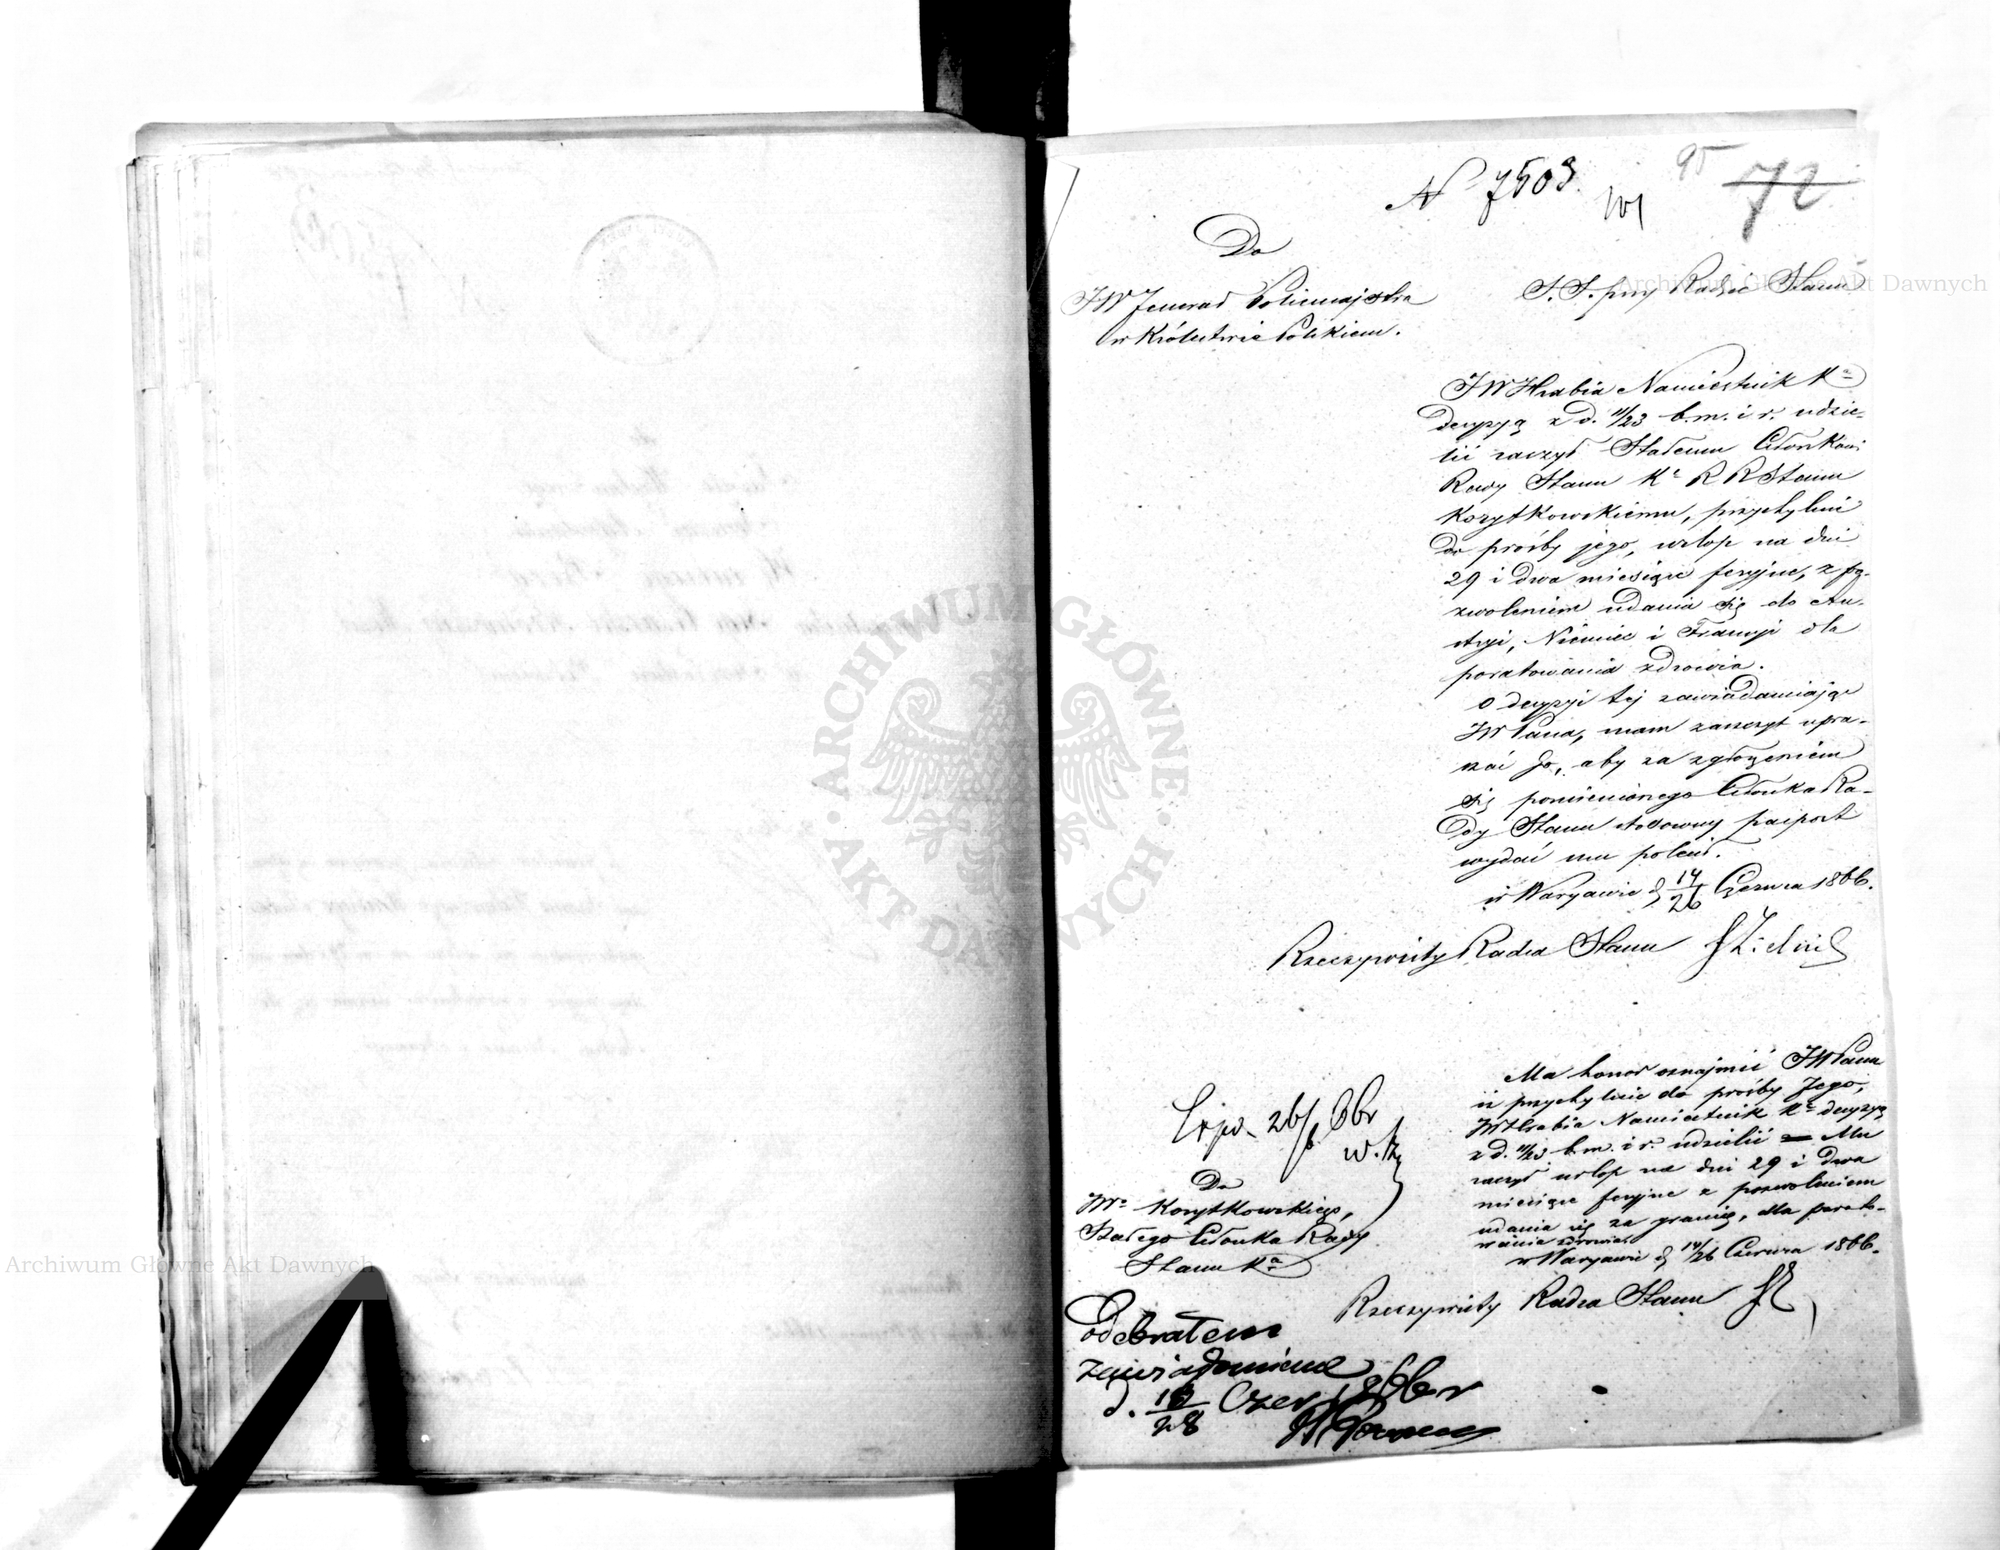 N 7503.
95
72
Do
JW Jenerał Policmajstra
w Królestwie Polskiem.
S. S. przy Radzie Stanu
JW Hrabia Namiestnik Kr
decyzyą z d. 11/23 b. m. i r. udzie-
lić raczył Stałemu Członkowi
Rady Stanu Kr R R Stanu
Korytkowskiemu, przychylnie
do prośby jego, urlop na dni
29 i dwa miesiące feryjne, z po-
zwoleniem udania się do Au-
stryi, Niemiec i Francyi dla
poratowania zdrowia.
O decyzyi tej zawiadamiając
JW Pana, mam zaszczyt upra-
szać Go, aby za zgłoszeniem
się pomienionego Członka Ra-
dy Stanu stosowny paszport
wydać mu polecił.
w Warszawie d 14/26 Czerwca 1866.
Rzeczywisty Radca Stanu
Exp. 26/6 66r
Do
JWo Korytkowskiego,
Stałego Członka Rady
Stanu Kr
Ma honor oznajmić JW Panu
iż przychylnie do prośby Jego,
JW Hrabia Namiestnik Kr decyzyą
z d. 11/23 b. m. i r. udzielić Mu
raczył urlop na dni 29 i dwa
miesiące feryjne z pozwoleniem
udania się za granicę, dla porato-
wania zdrowia.
w Warszawie d 14/26 Czerwca 1866.
Rzeczywisty Radca Stanu
Odebrałem
zawiadomienie
d. 16/28 Czer 1866r
Archiwum Główne Akt Dawnych
Archiwum Główne Akt Dawnych
ARCHIWUM GŁÓWNE
AKT DAWNYCH